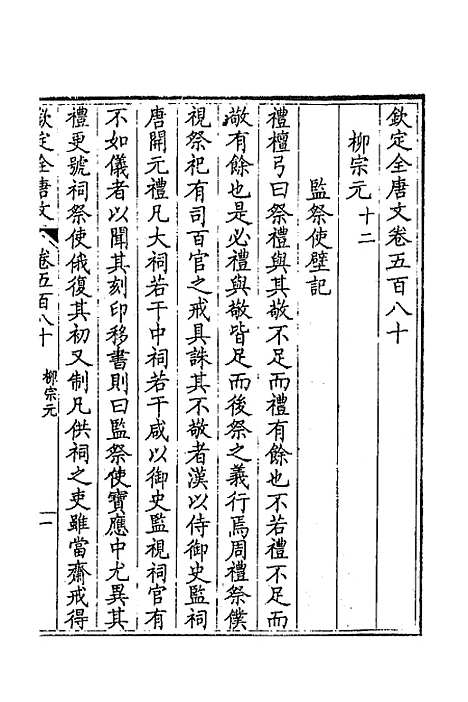 欽定全唐文卷五百八十
柳宗元十二
監祭使壁記
禮檀弓曰祭禮與其敬不足而禮有餘也不若禮不足而
敬有餘也是必禮與敬皆足而後祭之義行焉周禮祭僕
視祭祀有司百官之戒具誅其不敬者漢以侍御史監祠
唐開元禮凡大祠若干中祠若干咸以御史監視祠官有
不如儀者以聞其刻印移書則曰監祭使寶應中尤異其
禮更號祠祭使俄復其初又制凡供祠之吏雖當齋戒得
欽定全唐文 卷五百八十 柳宗元 一